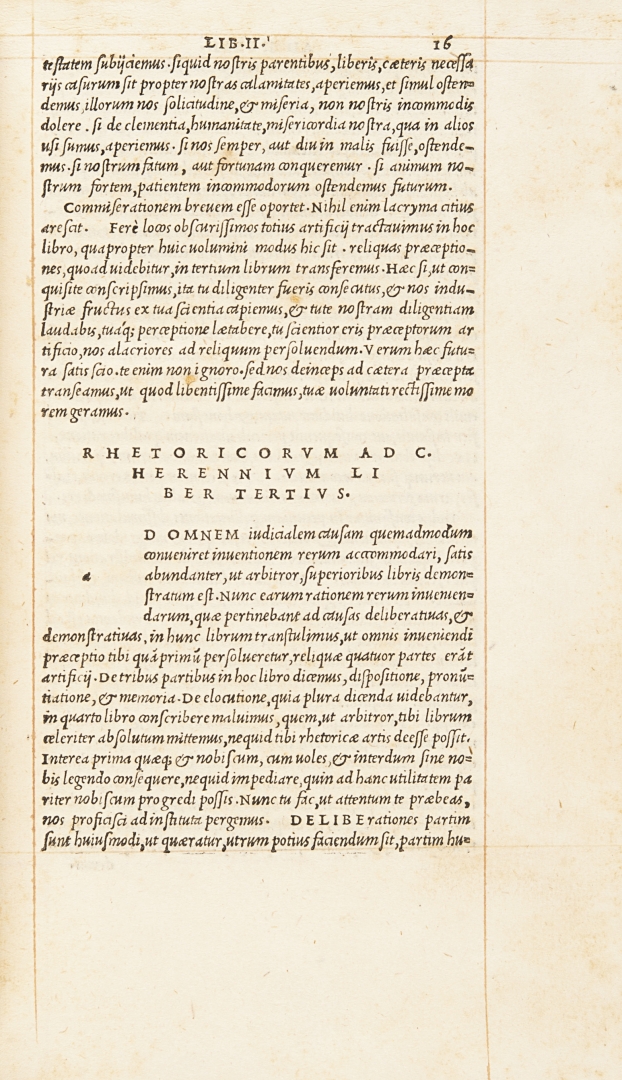 LIB.II.
16
testatem subijciemus. siquid nostris parentibus, liberis, cæteris necessa
rijs casurum sit propter nostras calamitates, aperiemus, et simul osten=
demus, illorum nos solicitudine, & miseria, non nostris incommodis
dolere. si de clementia, humanitate, misericordia nostra, qua in alios
usi sumus, aperiemus. si nos semper, aut diu in malis fuisse, ostende=
mus. si nostrum fatum, aut fortunam conqueremur. si animum no=
strum fortem, patientem incommodorum ostendemus futurum.
Commiserationem breuem esse oportet. Nihil enim lacryma citius
arescit. Ferè locos obscurissimos totius artificij tractauimus in hoc
libro, quapropter huic uolumini modus hic sit. reliquas præceptio=
nes, quoad uidebitur, in tertium librum transferemus. Hæc si, ut con=
quisite conscripsimus, ita tu diligenter fueris consecutus, & nos indu=
striæ fructus ex tua scientia capiemus, & tute nostram diligentiam
laudabis, tuaq; perceptione lætabere, tu scientior eris præceptorum ar
tificio, nos alacriores ad reliquum persoluendum. Verum hæc futu=
ra satis scio. te enim non ignoro. sed nos deinceps ad cætera præcepta
transeamus, ut quod libentissime facimus, tuæ uoluntati rectissime mo
rem geramus.
RHETORICORVM AD C.
HERENNIVM LI
BER TERTIVS.
D OMNEM iudicialem causam quemadmodum
conueniret inuentionem rerum accommodari, satis
a abundanter, ut arbitror, superioribus libris demon=
stratum est. Nunc earum rationem rerum inuenien=
darum, quæ pertinebant ad causas deliberatiuas, &
demonstratiuas, in hunc librum transtulimus, ut omnis inueniendi
præceptio tibi quã primũ persolueretur, reliquæ quatuor partes erãt
artificij. De tribus partibus in hoc libro dicemus, dispositione, pronũ=
tiatione, & memoria. De elocutione, quia plura dicenda uidebantur,
in quarto libro conscribere maluimus, quem, ut arbitror, tibi librum
celeriter absolutum mittemus, nequid tibi rhetoricæ artis deesse possit.
Interea prima quæq; & nobiscum, cum uoles, & interdum sine no=
bis legendo consequere, nequid impediare, quin ad hanc utilitatem pa
riter nobiscum progredi possis. Nunc tu fac, ut attentum te præbeas,
nos proficisci ad instituta pergemus. DELIBErationes partim
sunt huiusmodi, ut quæratur, utrum potius faciendum sit, partim hu=